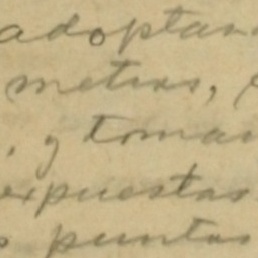 adoptan
metros,
. y toman
expuestas
puntos